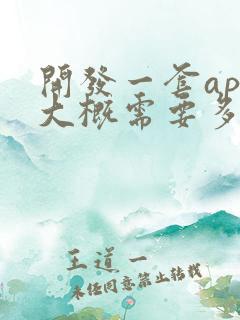 開發一套ap
大概需要多
王道一
未经同意禁止转载